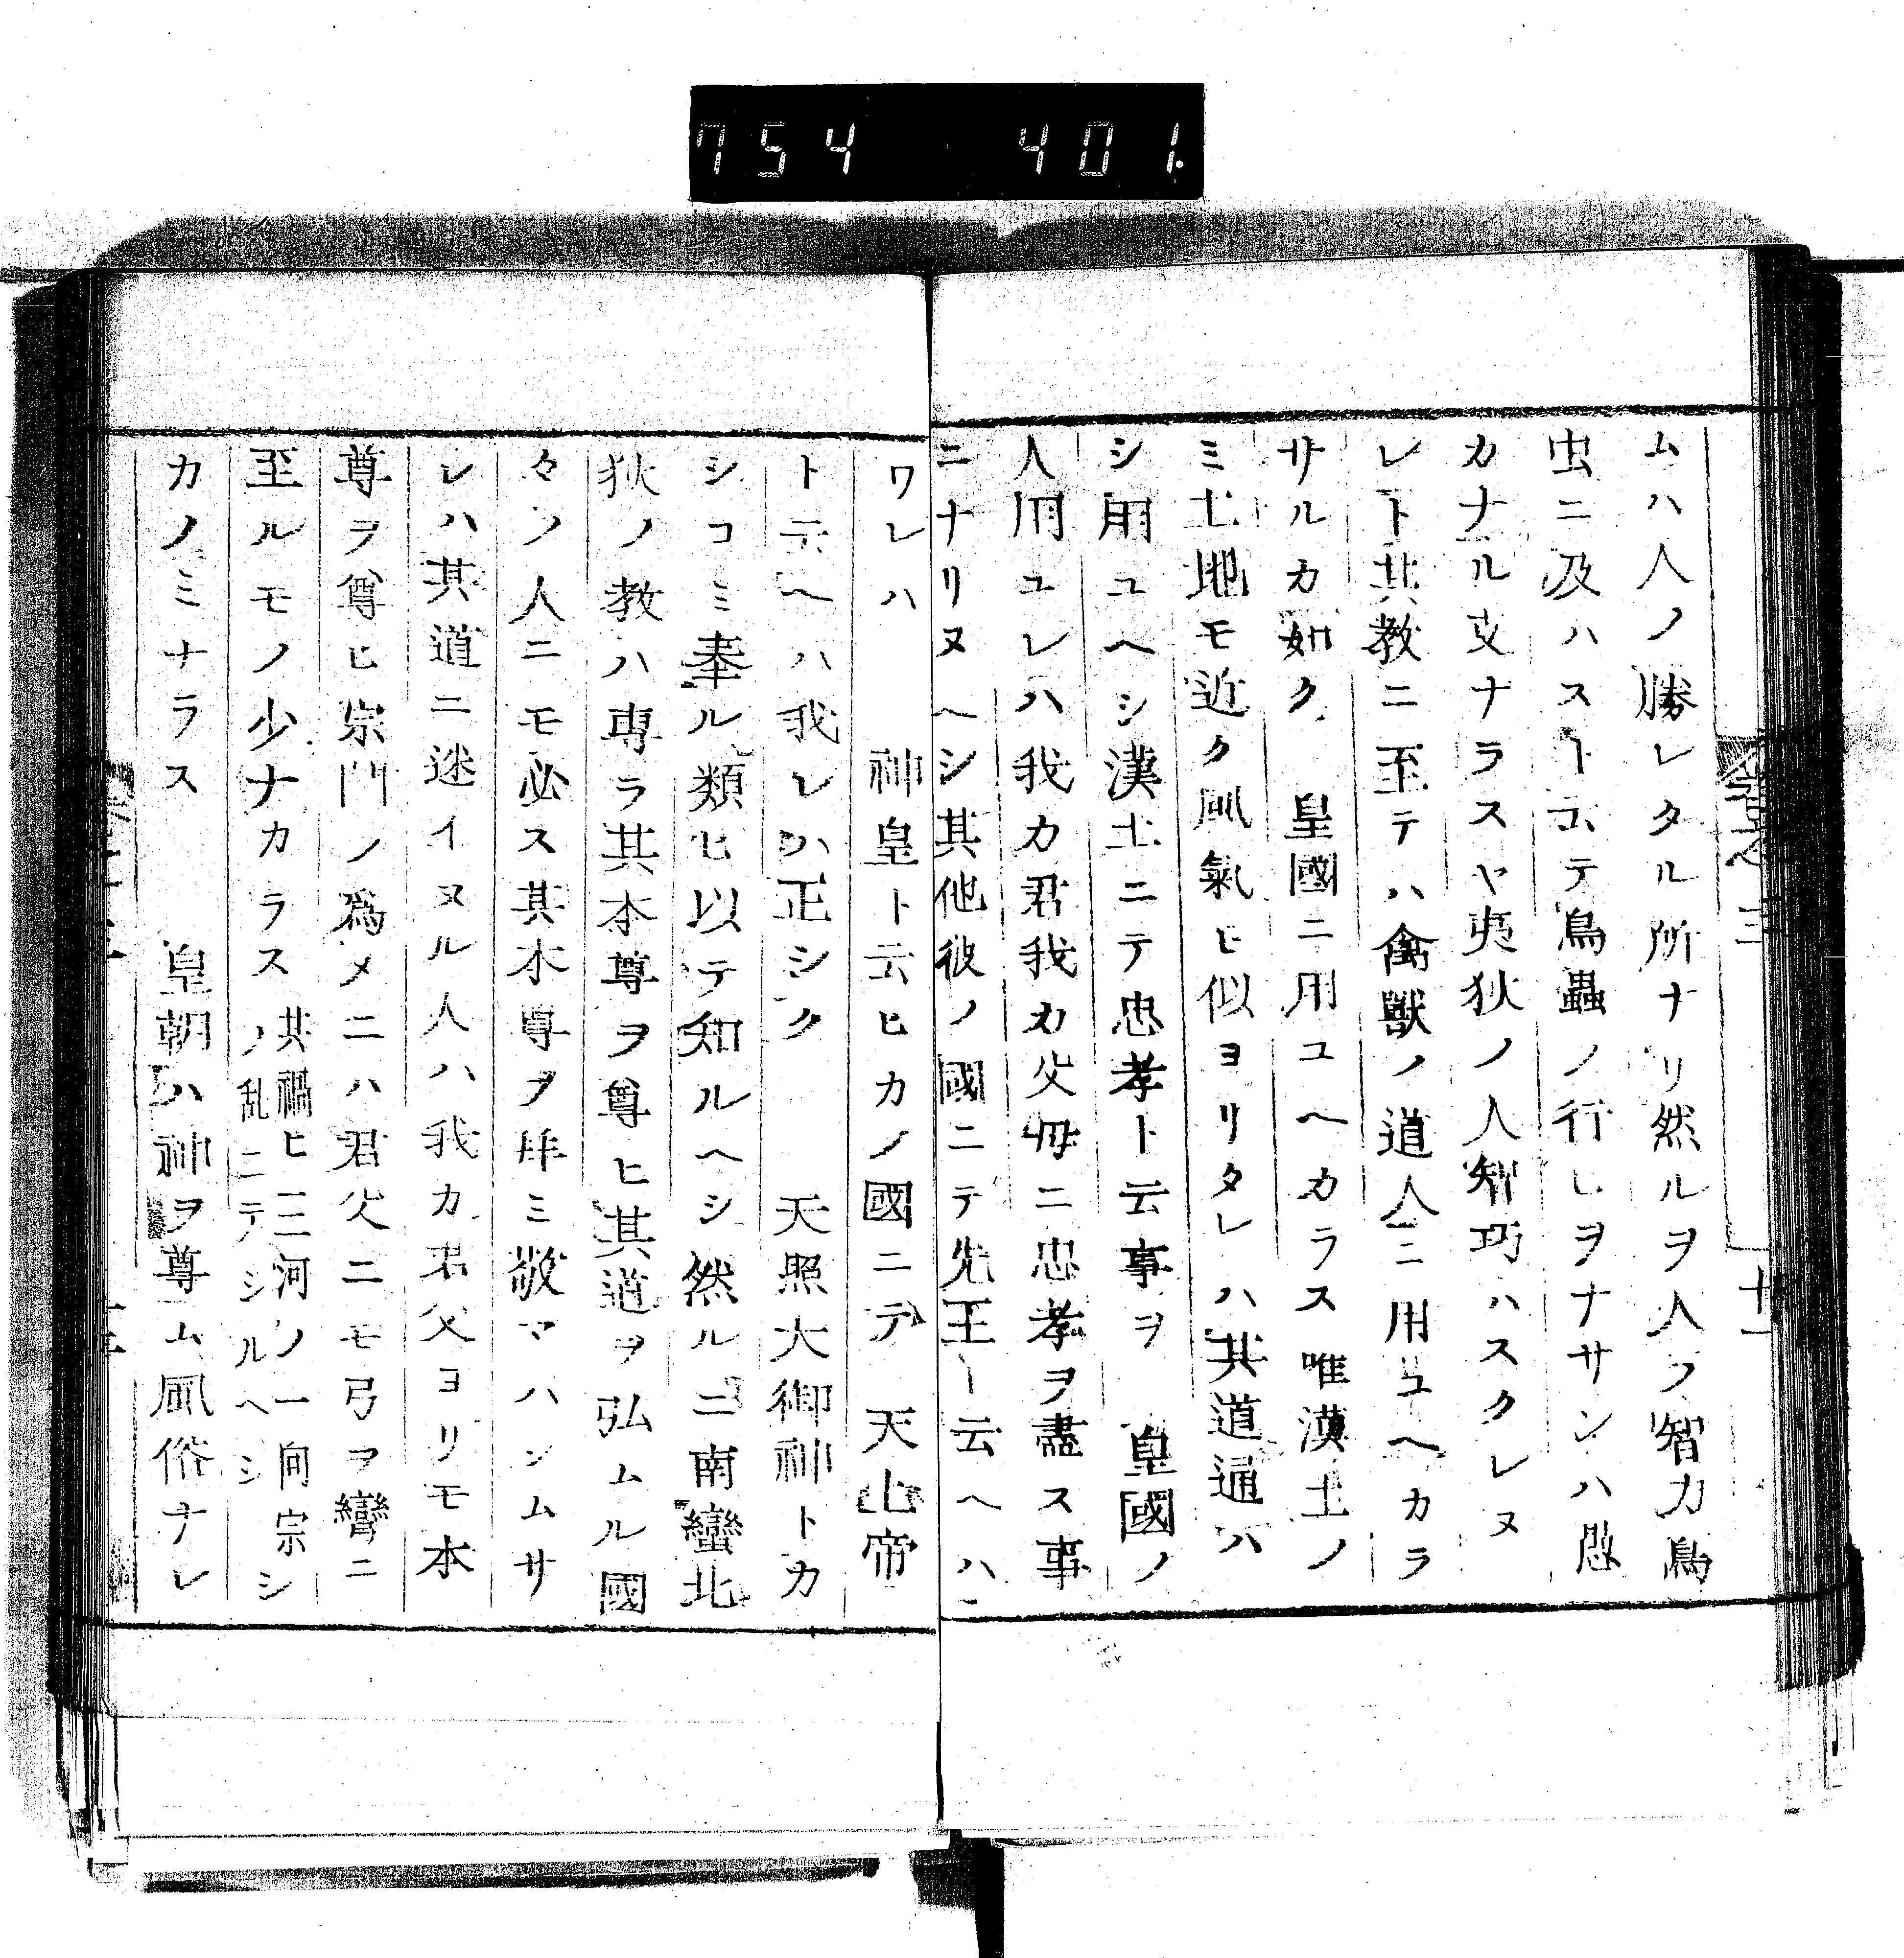 754 401.
ムハ人ノ勝レタル所ナリ然ルヲ人ノ智力鳥
虫ニ及ハスト云テ鳥蟲ノ行レヲナサンハ愚
カナル支ナラスヤ夷狄ノ人智巧ハスクレヌ
レト其教ニ至テハ禽獣ノ道人ニ用ユヘカラ
サルカ如ク 皇國ニ用ユヘカラス唯漢土ノ
ミ土地モ近ク風氣ヒ似ヨリタレハ其道通ハ
シ用ユヘシ漢土ニテ忠孝ト云事ヲ 皇國ノ
人用ユレハ我カ君我カ父母ニ忠孝ヲ盡ス事
ニナリヌヘシ其他彼ノ國ニテ先王ト云ヘハ
ワレハ 神皇ト云ヒカノ國ニテ 天 上帝
ト云ヘハ我レハ正シク 天照大御神トカ
シコミ奉ル類ヒ以テ知ルヘシ然ルニ南蠻北
狄ノ教ハ専ラ其本尊ヲ尊ヒ其道ヲ弘ムル國
々ノ人ニモ必ス其本尊ヲ拜ミ敬マハシムサ
レハ其道ニ迷イヌル人ハ我カ君父ヨリモ本
尊ヲ尊ヒ宗門ノ爲メニハ君父ニモ弓ヲ彎ニ
至ルモノ少ナカラス 其禍ヒ三河ノ一向宗シ
ノ乱ニテシルヘシ
カノミナラス 皇朝ハ神ヲ尊ム風俗ナレ